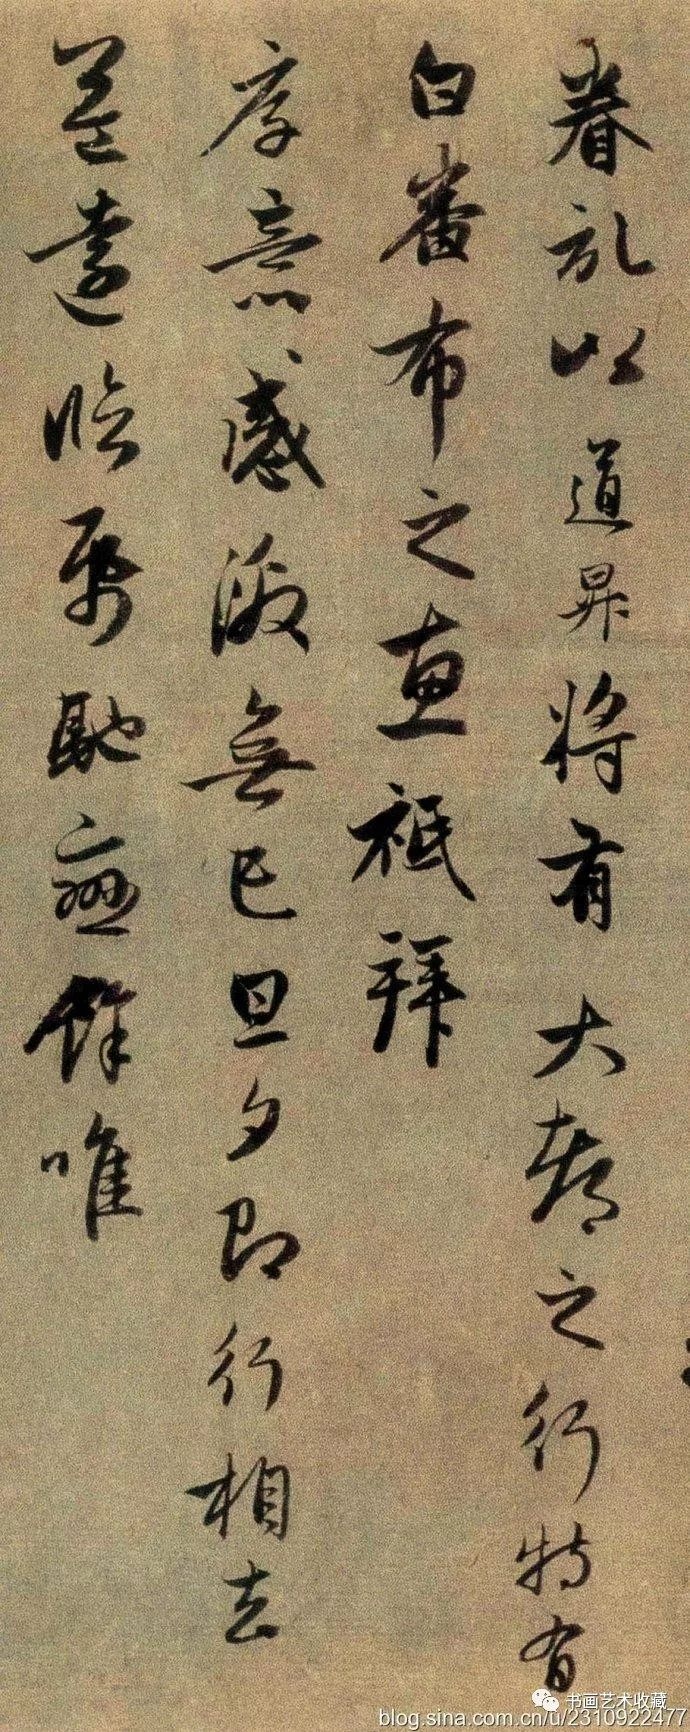 眷以道昇將有大都之行特有
白番布之惠祗拜
厚意感激無已旦夕即行相去
益遠臨帋馳戀餘唯
书画艺术收藏
blog.sina.com.cn/u/2310922477